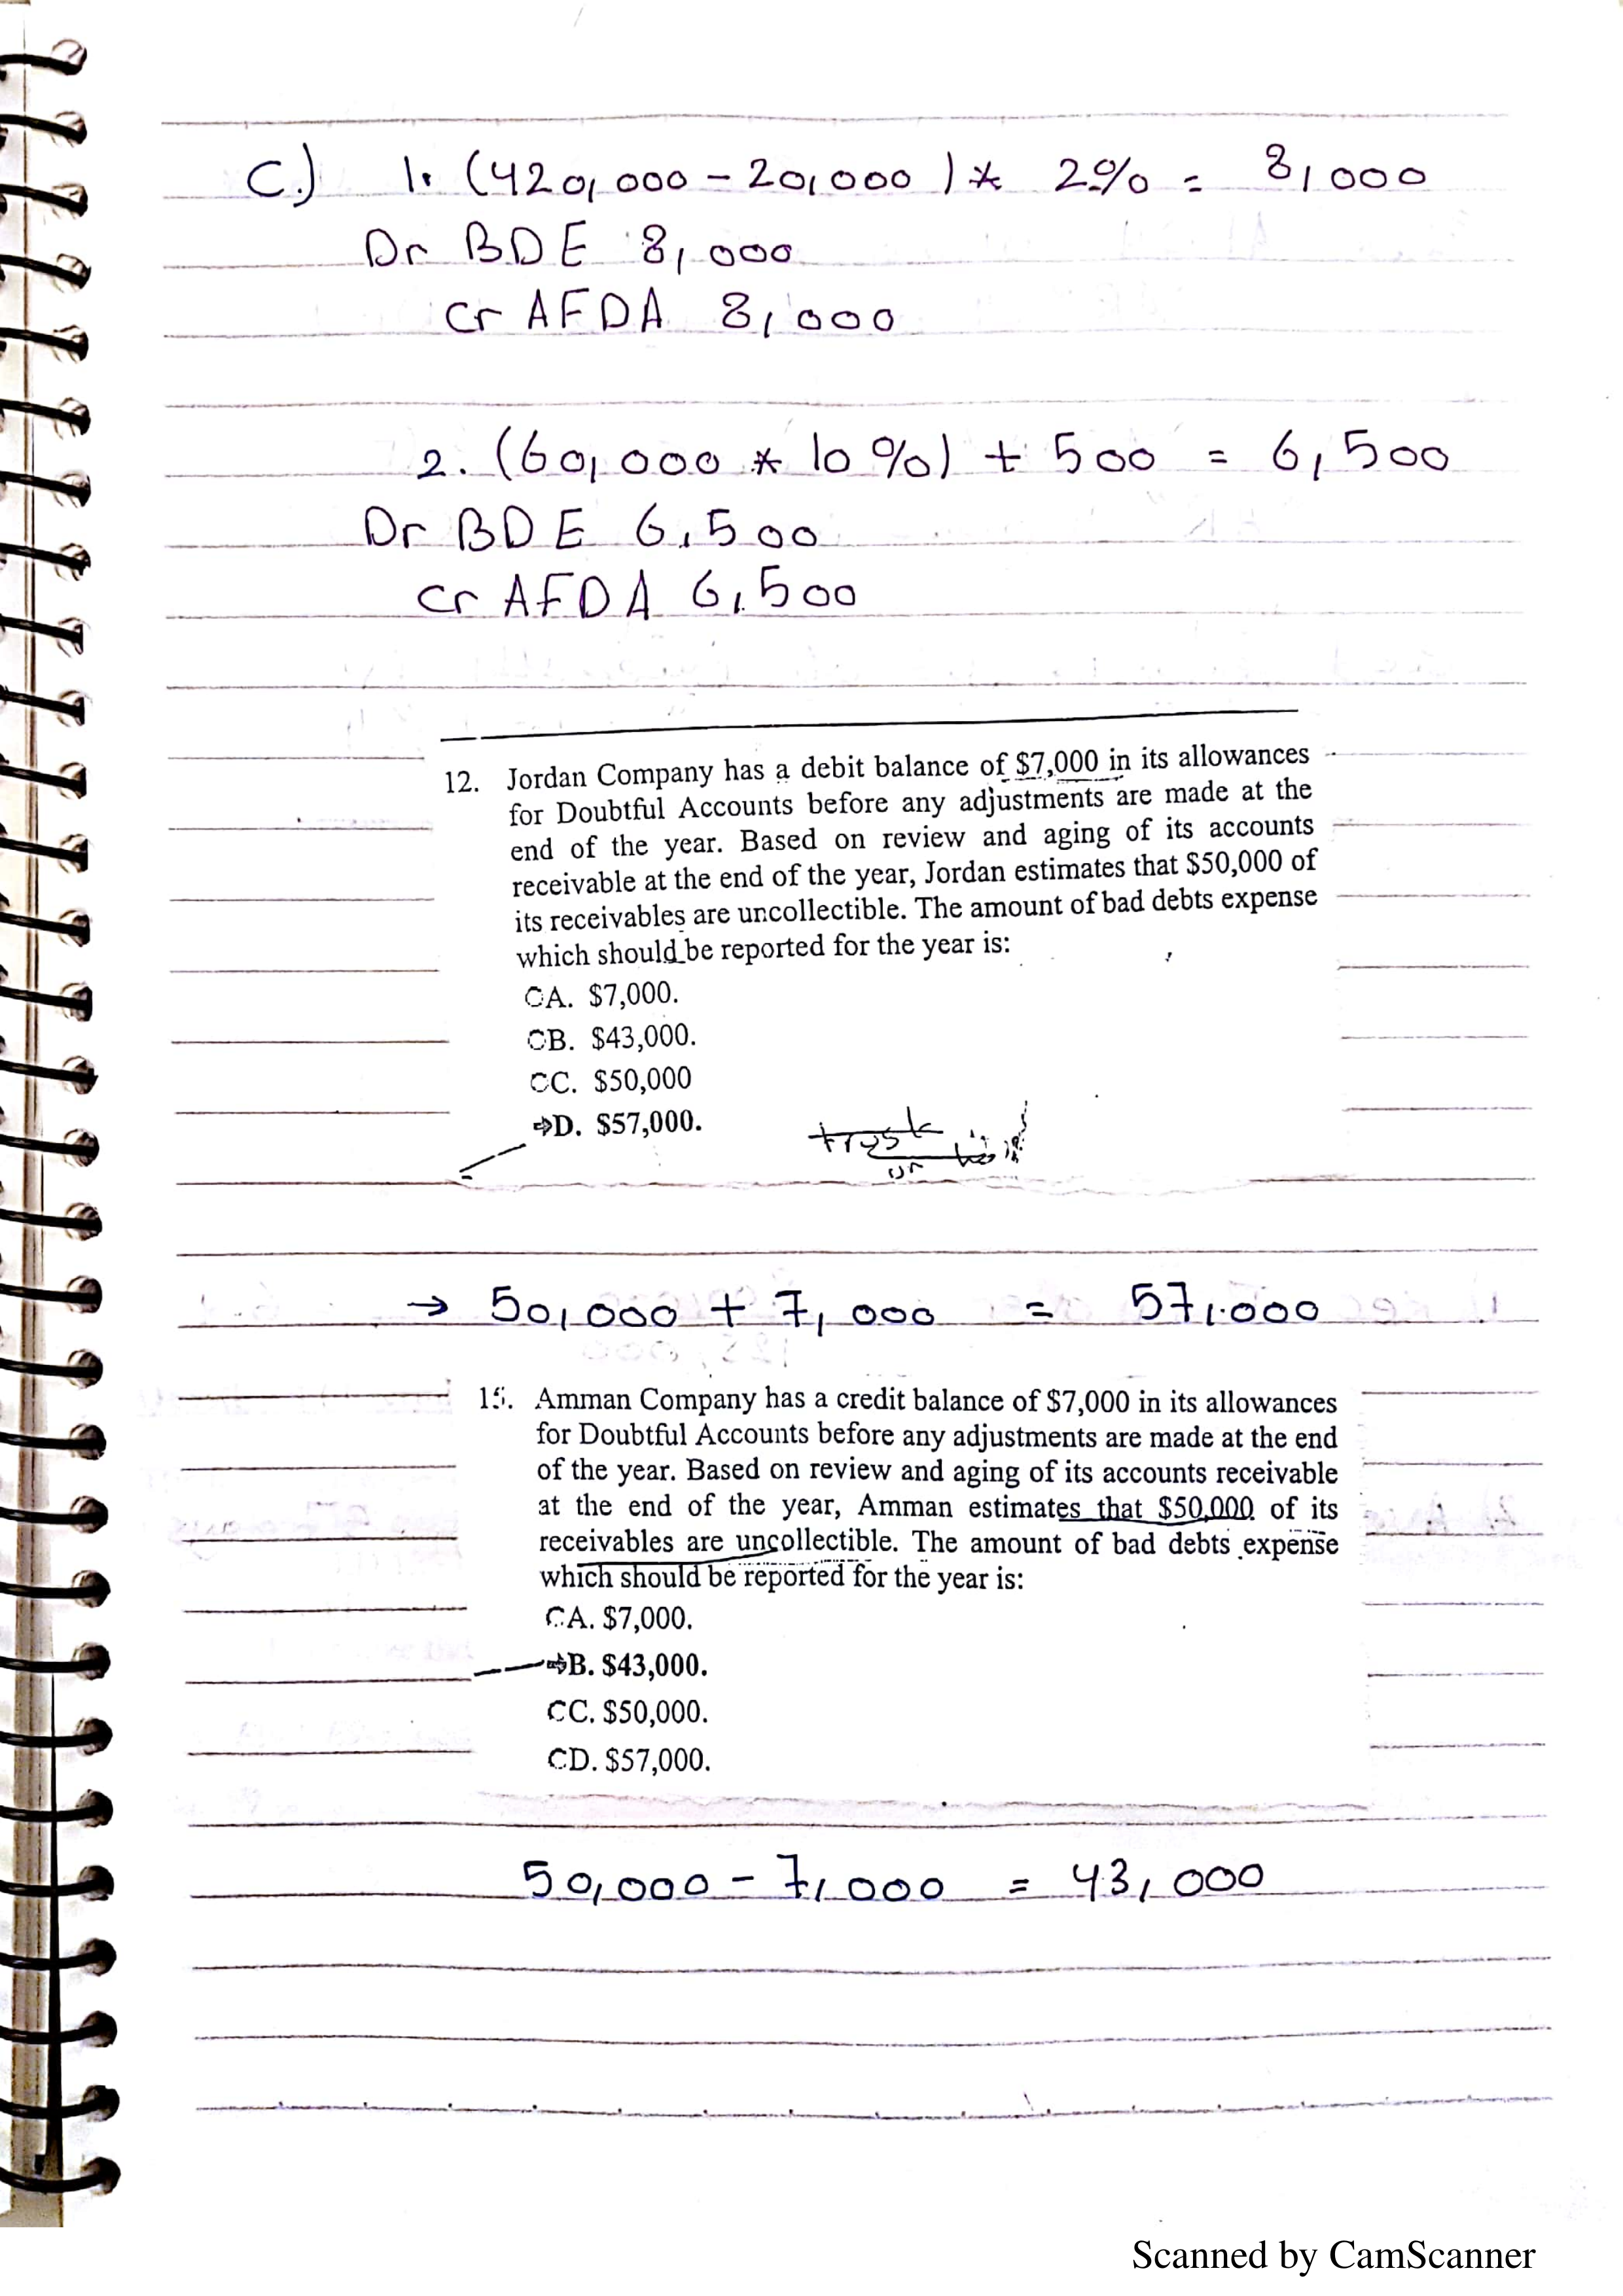 C.) 1. (420,000 - 20,000) * 2% = 8,000
Dr BDE 8,000
Cr AFDA 8,000
2. (60,000 * 10%) + 500 = 6,500
Dr BDE 6,500
Cr AFDA 6,500
12. Jordan Company has a debit balance of $7,000 in its allowances
for Doubtful Accounts before any adjustments are made at the
end of the year. Based on review and aging of its accounts
receivable at the end of the year, Jordan estimates that $50,000 of
its receivables are uncollectible. The amount of bad debts expense
which should be reported for the year is:
A. $7,000.
B. $43,000.
C. $50,000
⇒D. $57,000.
→ 50,000 + 7,000 = 57,000
15. Amman Company has a credit balance of $7,000 in its allowances
for Doubtful Accounts before any adjustments are made at the end
of the year. Based on review and aging of its accounts receivable
at the end of the year, Amman estimates that $50,000 of its
receivables are uncollectible. The amount of bad debts expense
which should be reported for the year is:
A. $7,000.
⇒B. $43,000.
C. $50,000.
D. $57,000.
50,000 - 7,000 = 43,000
Scanned by CamScanner